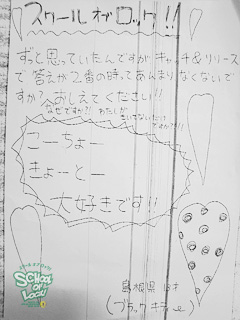 スクールオブロック!!
ずっと思っていたんですがキャッチ&リリース
で答えが2番の時ってあんまりなくないで
すか?おしえてください!!
なぜですか?!わたしが
きいてないだけ
ですか?!!
こーちょー
きょーとー
大好きです!!
島根県 13才
SCHOOL
OF
LOCK!